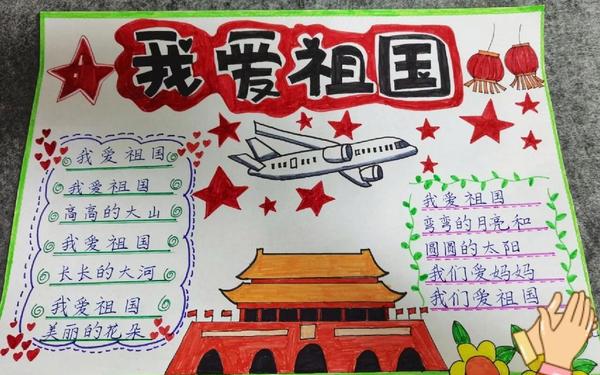 我爱祖国
我爱祖国
我爱祖国
高高的大山
我爱祖国
长长的大河
我爱祖国
美丽的花朵
我爱祖国
弯弯的月亮和
圆圆的太阳
我们爱妈妈
我们爱祖国